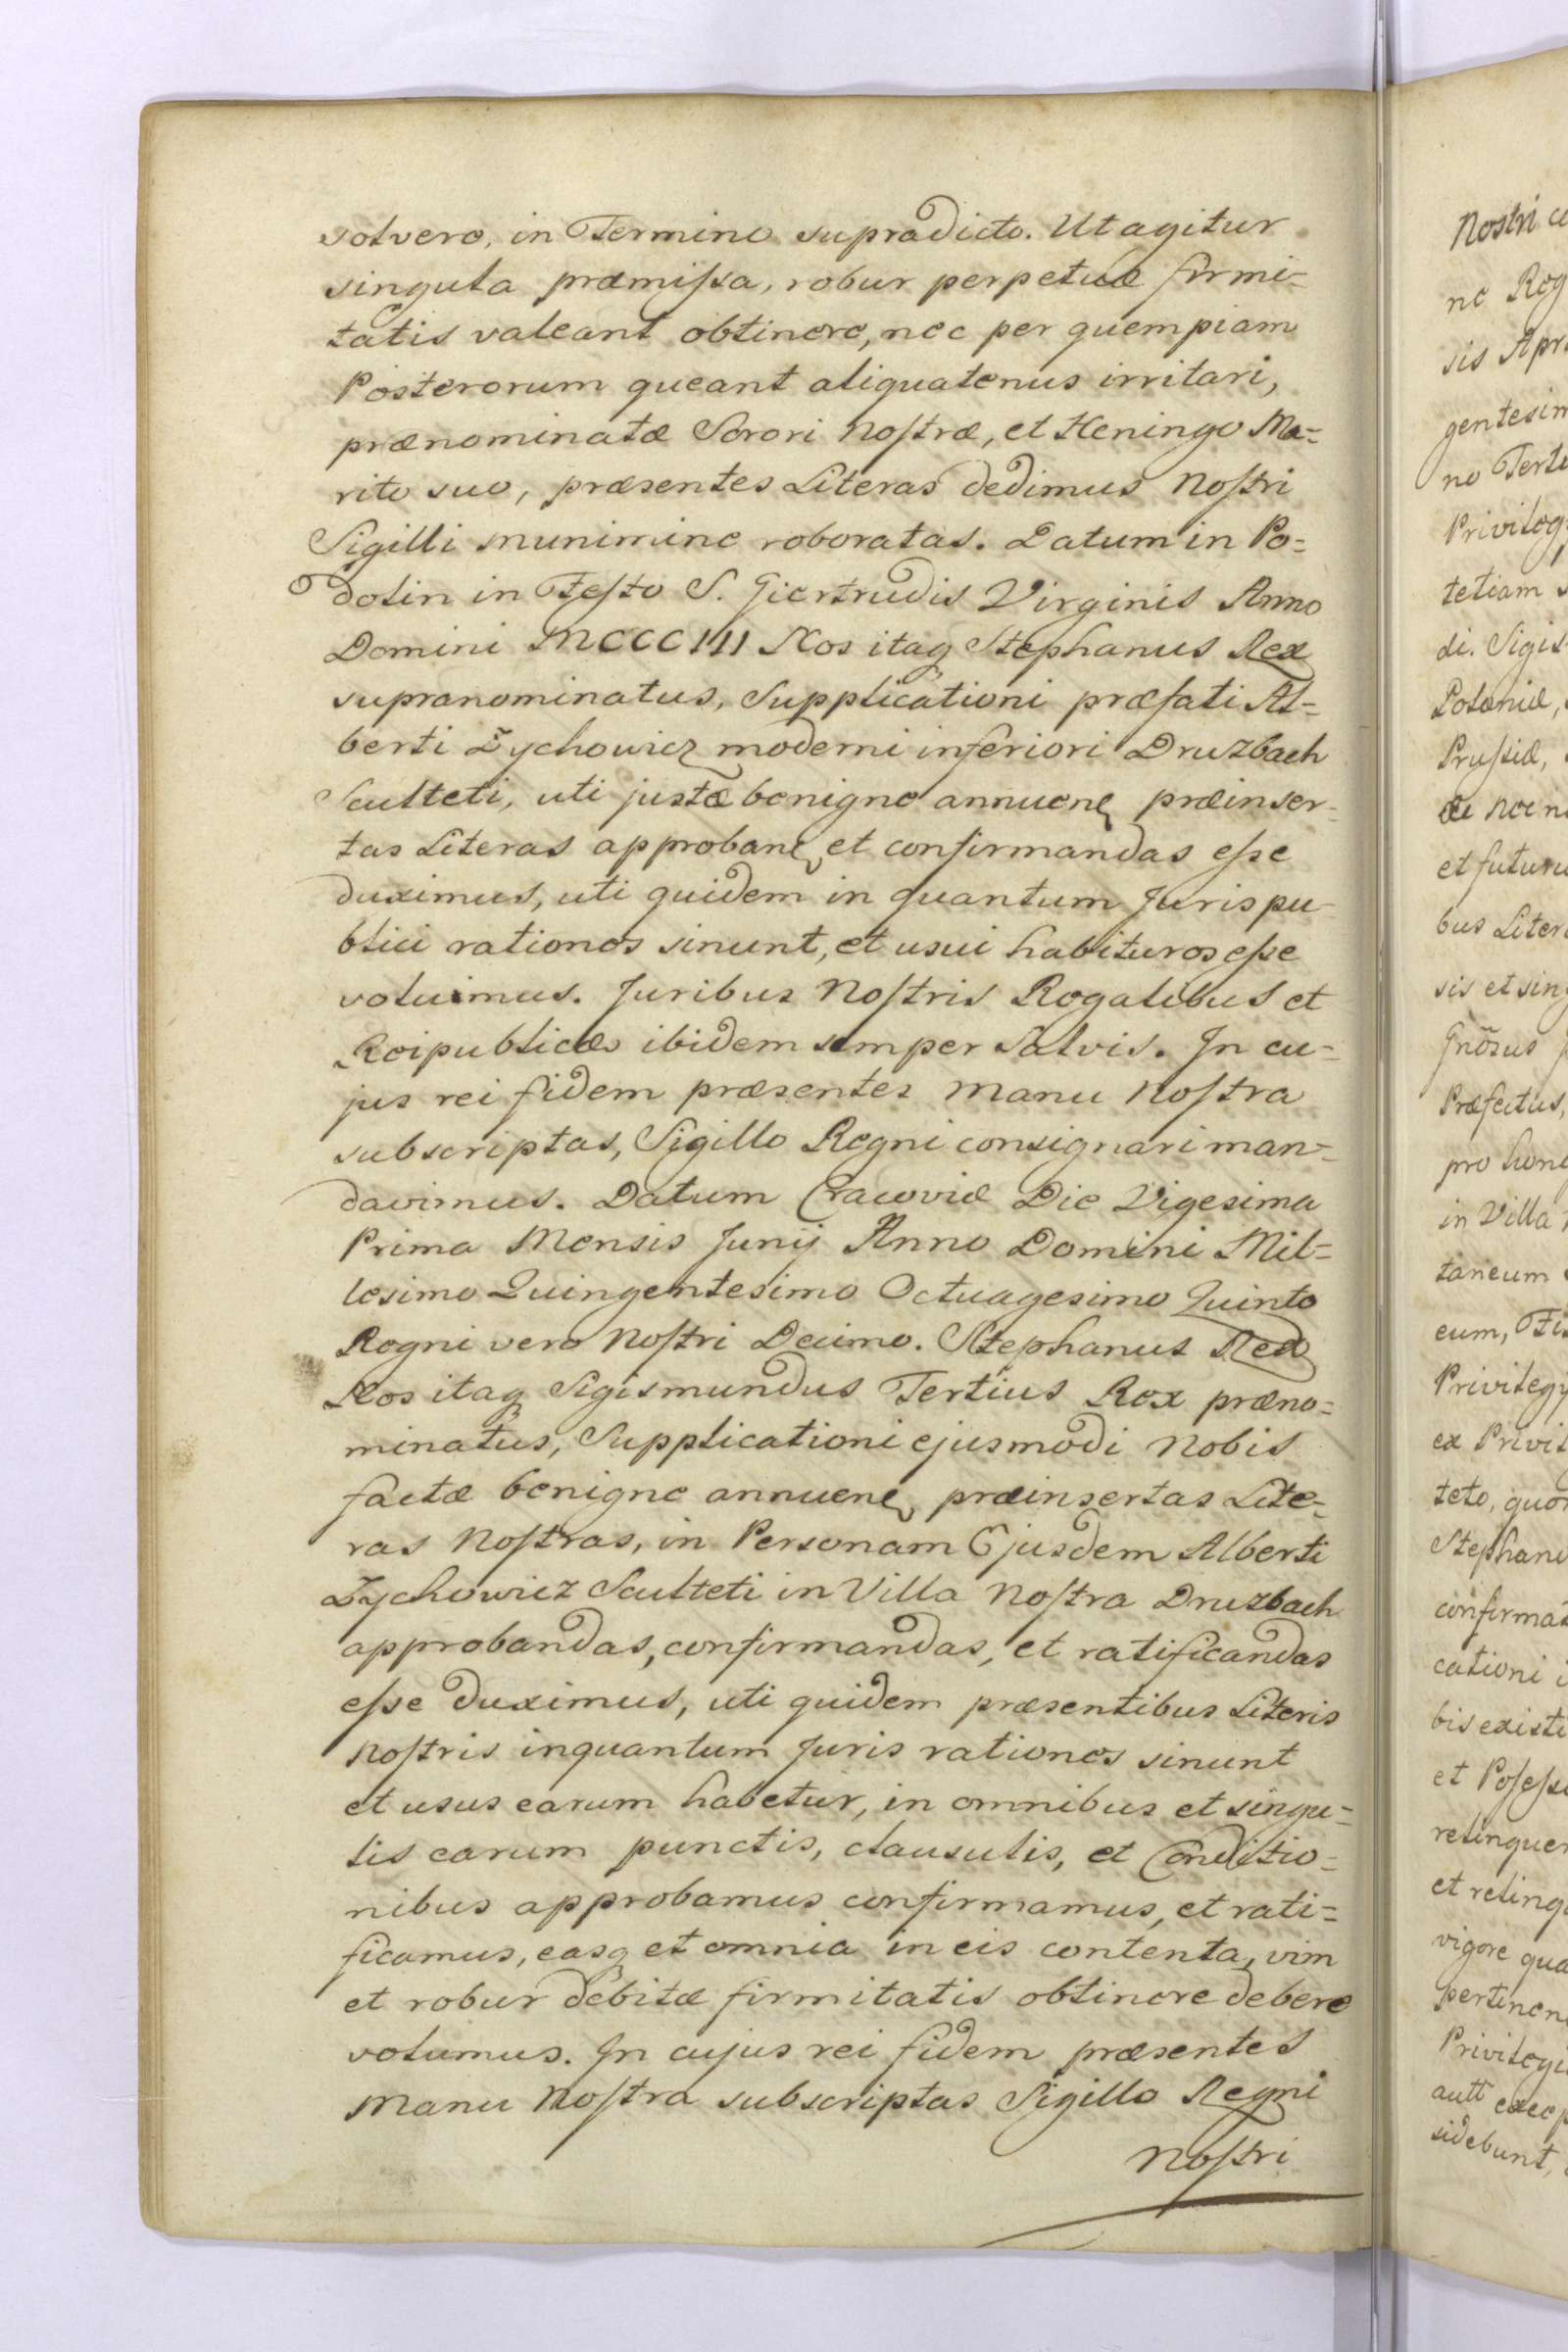 solvere, in Termino supradicto. Ut agitur
singula præmissa, robur perpetuæ firmi=
tatis valeant obtinere, nec per quempiam
Posterorum queant aliquatenus irritari,
prænominatæ Sorori Nostræ, et Heningo Ma=
rito suo, præsentes Literas dedimus Nostri
Sigilli munimine roboratas. Datum in Po=
dolin in Festo S. Giertrudis Virginis Anno
Domini MCCCIII Nos itaq Stephanus Rex
supranominatus, Supplicationi præfati Al=
berti Zychowicz moderni inferiori Druzbach
Sculteti, uti justæ benigne annuen præinser=
tas Literas approban et confirmandas esse
duximus, uti quidem in quantum Juris pu=
blici rationes sinunt, et usui habituros esse
voluimus. Juribus Nostris Regalibus et
Reipublicæ ibidem semper salvis. In cu=
jus rei fidem præsentes manu Nostra
subscriptas, Sigillo Regni consignari man=
davimus. Datum Cracoviæ Die Vigesima
Prima Mensis Junij Anno Domini Mil=
lesimo Quingentesimo Octuagesimo Quinto
Regni vero Nostri Decimo. Stephanus Rex
Nos itaq Sigismundus Tertius Rex præno=
minatus, Supplicationi ejusmodi Nobis
factæ benigne annuen præinsertas Lite=
ras Nostras, in Personam Ejusdem Alberti
Zychowicz Sculteti in Villa Nostra Druzbach
approbandas, confirmandas, et ratificandas
esse duximus, uti quidem præsentibus Literis
Nostris inquantum Juris rationes sinunt
et usus earum habetur, in omnibus et singu=
lis earum punctis, clausulis, et Conditio=
nibus approbamus confirmamus, et rati=
ficamus, easq et omnia in eis contenta, vim
et robur debitæ firmitatis obtinere debere
volumus. In cujus rei fidem præsentes
Manu Nostra subscriptas Sigillo Regni
Nostri
Nostri
ne Reg
sis Apr
gentesim
no Terti
Privileg
tetiam
di. Sigis
Poloniæ,
Prussiæ,
æ nec n
et futuru
bus Liter
sis et sin
Præfectus,
pro
in Villa
taneum
eum,
Privilegy
ex Privil
teto, quo
Stephan
confirmat
cationi
bis existe
et Possess
relinquen
et relinq
vigore qua
pertinen
Privilegi
autt excep
sidebunt,